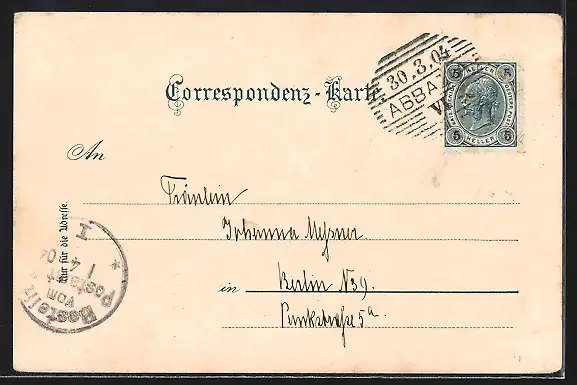 Correspondenz-Karte
30.3.04
ABBA
5 5
5 HELLER 5
An
Fräulein
Johanna Messner
in Berlin N39.
Punkstraße 5a
Nur für die Adresse.
Bestellt
vom
Postamte
1 4 04
I